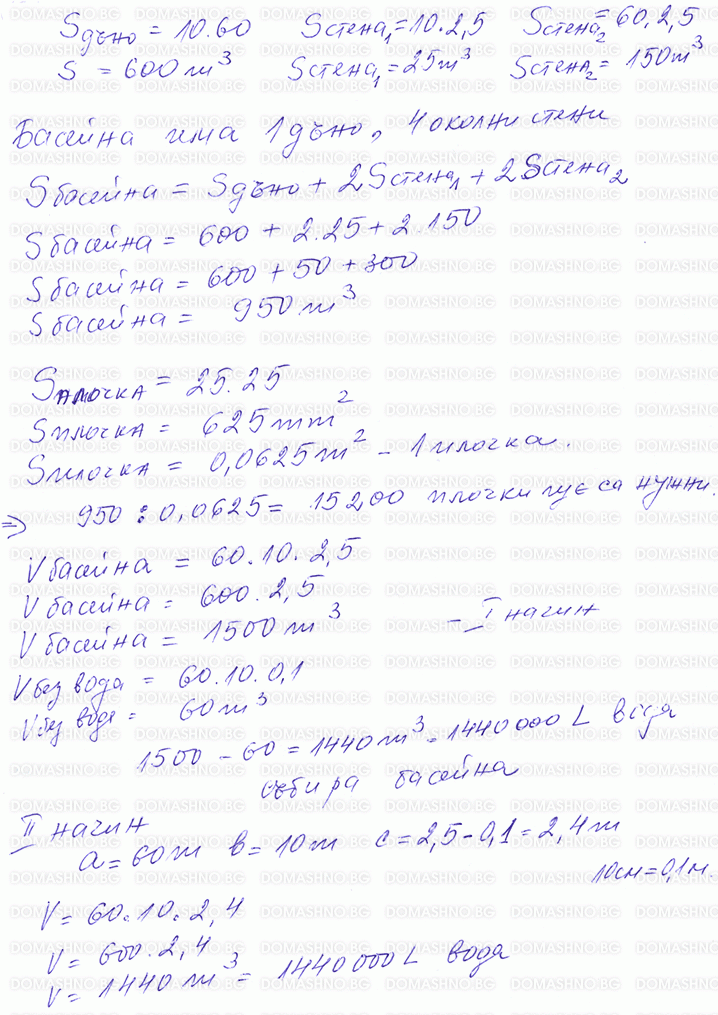 Sдъно = 10.60 Sстена₁ = 10.2,5 Sстена₂ = 60.2,5
S = 600 m³ Sстена₁ = 25m³ Sстена₂ = 150m³
Басейна има 1 дъно, 4 околни стени
Sбасейна = Sдъно + 2Sстена₁ + 2Sстена₂
Sбасейна = 600 + 2.25 + 2.150
Sбасейна = 600 + 50 + 300
Sбасейна = 950 m³
Sплочка = 25.25
Sплочка = 625 mm²
Sплочка = 0,0625 m² - 1 плочка.
=> 950 : 0,0625 = 15200 плочки ще са нужни.
Vбасейна = 60.10.2,5
Vбасейна = 600.2,5
Vбасейна = 1500 m³ - I начин
Vбез вода = 60.10.0,1
Vбез вода = 60m³
1500 - 60 = 1440m³ = 1440000 L вода
събира басейна
II начин
a = 60m в = 10m c = 2,5 - 0,1 = 2,4m
10см = 0,1м.
V = 60.10.2,4
V = 600.2,4
V = 1440 m³ = 1440000 L вода
DOMASHNO.BG